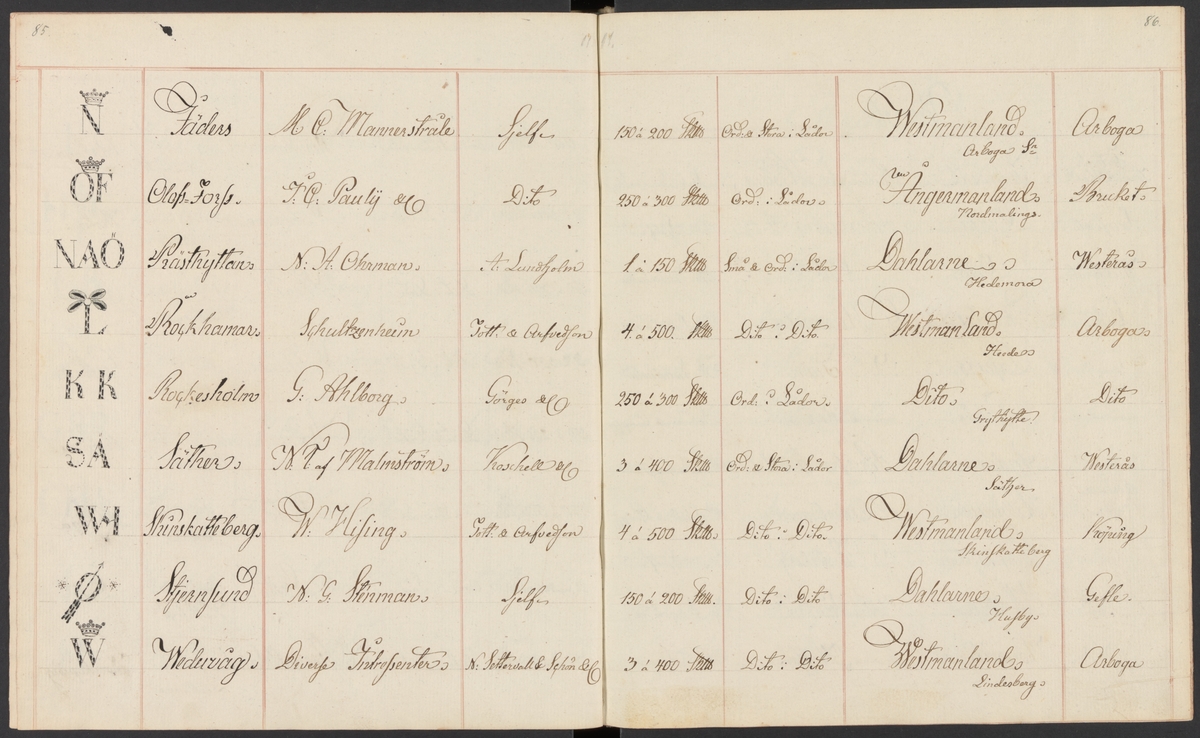 85.
86.
N Jäders M C: Mannerstråle Sjelf 150 á 200 Sk℔ Ord: & Stora i Lådor Westmanland Arboga
Arboga Sn
ÖF Olofs-Forss. F: C: Pauly &C Dito 250 á 300 Sk℔ Ord: i Lådor Ångermanland Bruket
Nordmalings
NAÖ Prästhyttan N: A: Öhrman A: Lundholm 1 á 150 Sk℔ Små & Ord: i Lådor Dahlarne Westerås
Hedemora
L Rockhamar Schultzenheim Tott: & Arfvedson 4. á 500. Sk℔ Dito i Dito. Westmanland Arboga
Hede
K K Rockesholm G: Ahlborg Görges &C 250 á 300 Sk℔ Ord: i Lådor Dito Dito
Grythytte
SÅ Säther N: T: af Malmström Koschell &C 3 á 400 Sk℔ Ord: & Stora i Lådor Dahlarne Westerås
Säther
WH Skinskatteberg W: Hising Tott: & Arfvedson 4 á 500 Sk℔ Dito i Dito Westmanland Köping
Skinskatteberg
Stjernsund N: G: Stenman Sjelf 150 á 200 Sk℔ Dito i Dito Dahlarne Gefle
Husby
W Wedevåg Diverse Intressenter N: Settervall & Schön &C 3 á 400 Sk℔ Dito i Dito Westmanland Arboga
Lindesberg